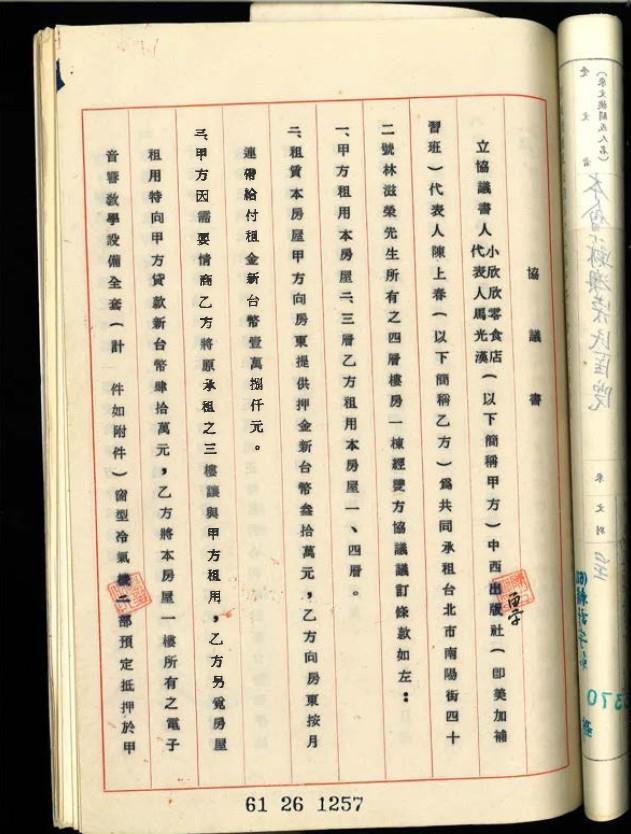 協議書
立協議書人小欣欣零食店代表人馬光漢(以下簡稱甲方)中西出版社(即美加補
習班)代表人陳上春(以下簡稱乙方)為共同承租台北市南陽街四十
二號林滋榮先生所有之四層樓房一棟經雙方協議議訂條款如左:
一、甲方租用本房屋二、三層乙方租用本房屋一、四層。
二、租賃本房屋甲方向房東提供押金新台幣叁拾萬元,乙方向房東按月
連帶給付租金新台幣壹萬捌仟元。
三、甲方因需要情商乙方將原承租之三樓讓與甲方租用,乙方另覓房屋
租用特向甲方貸款新台幣肆拾萬元,乙方將本房屋一樓所有之電子
音響教學設備全套(計 件如附件)窗型冷氣機二部預定抵押於甲
61 26 1257